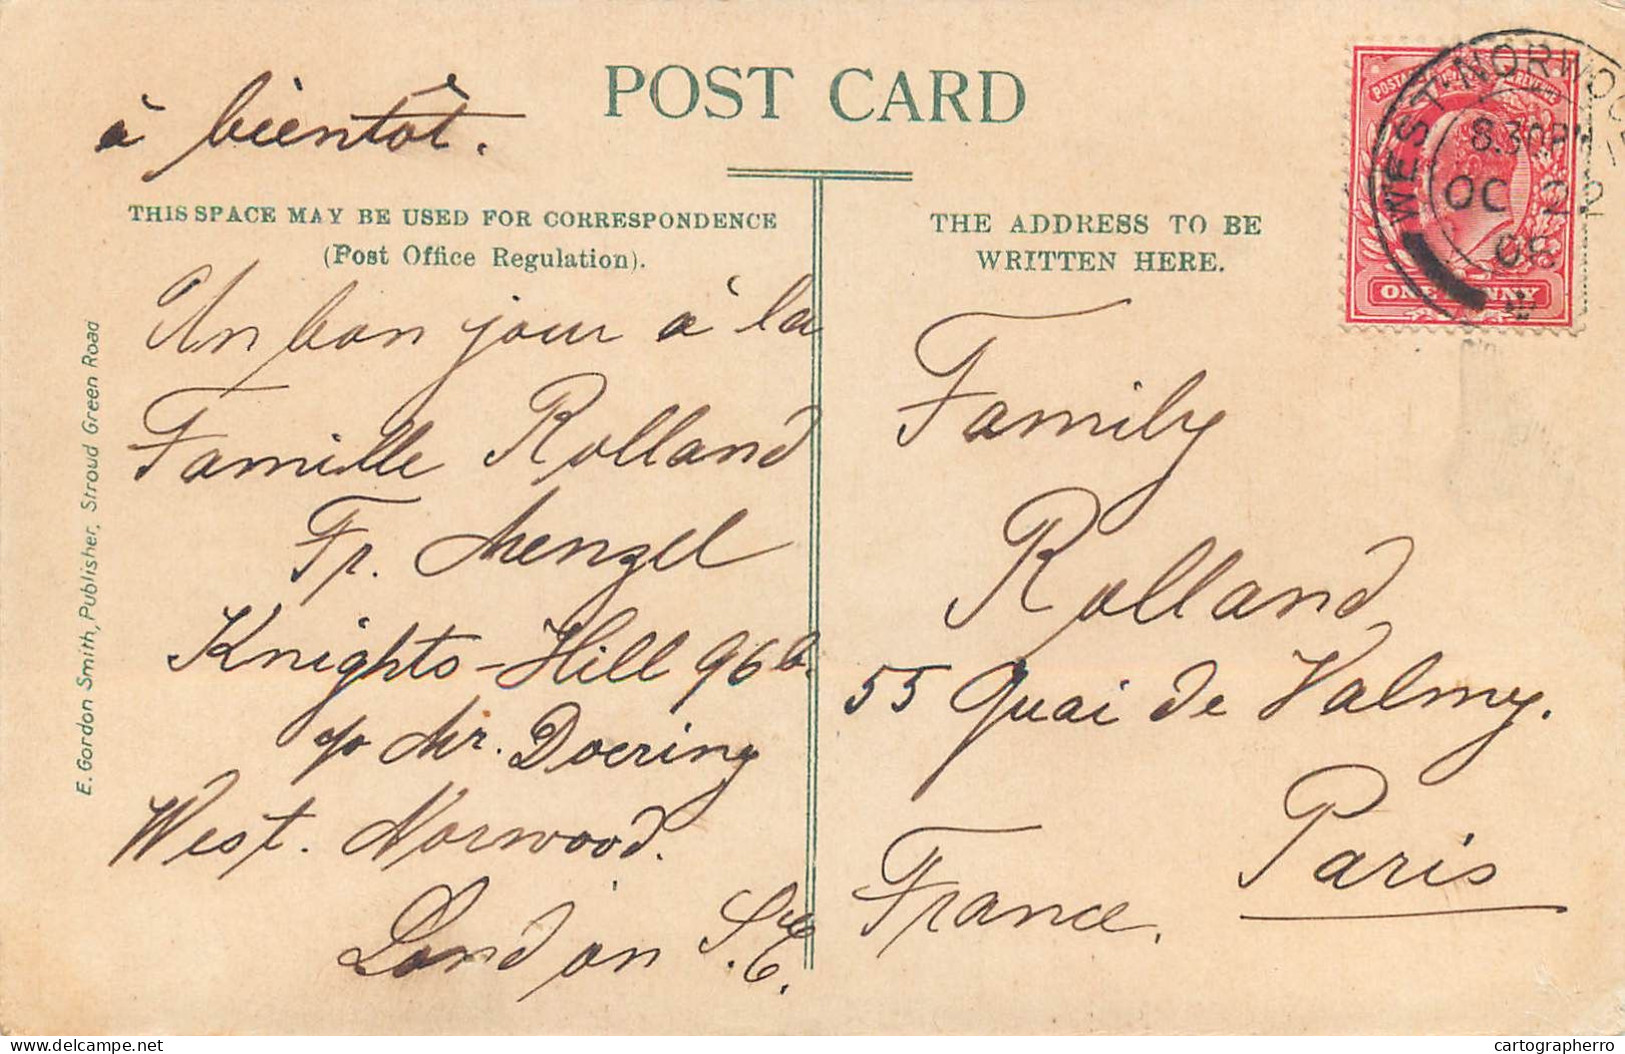 POST CARD
à bientôt.
THIS SPACE MAY BE USED FOR CORRESPONDENCE
(Post Office Regulation).
THE ADDRESS TO BE
WRITTEN HERE.
Un bon jour à la
Famille Rolland
Fr. Menzel
Knights-Hill 96b.
Mr. Doering
West. Norwood.
London S.E.
Family
Rolland
55 Quai de Valmy.
Paris
France.
E. Gordon Smith, Publisher, Stroud Green Road
WEST NORWOO
8.30PM
OC 2
08
ONE PENNY
cartographerro